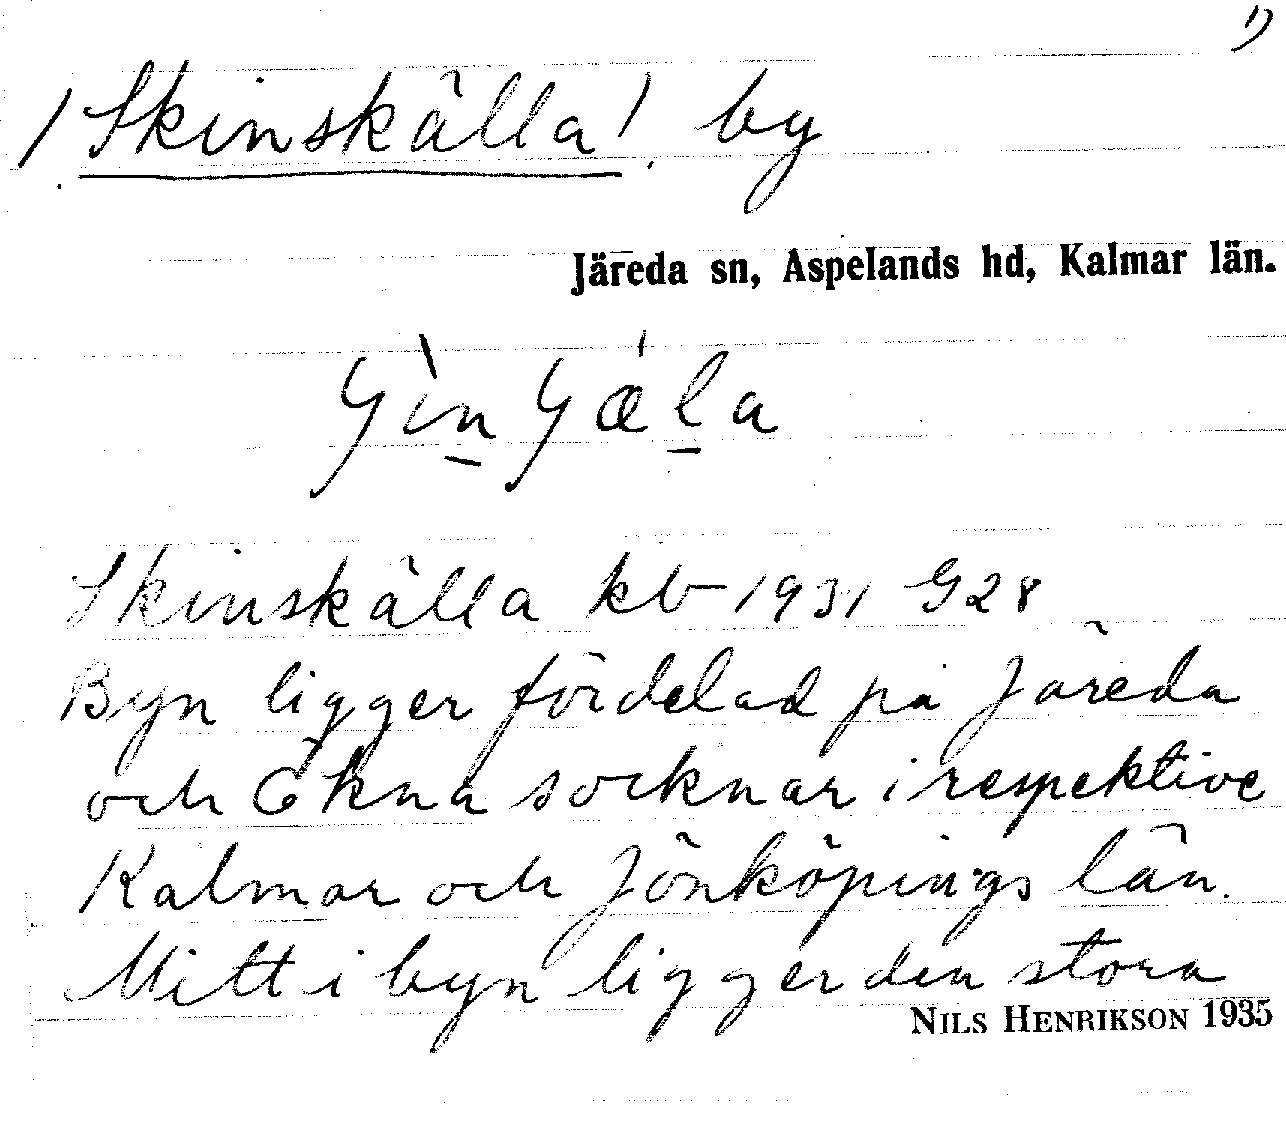 1)
/Skinskälla/. by
Järeda sn, Aspelands hd, Kalmar län.
Skinskälla kb 1931 G28
Byn ligger fördelad på Järeda
och Ökna socknar i respektive
Kalmar och Jönköpings län.
Mitt i byn ligger den stora
NILS HENRIKSON 1935